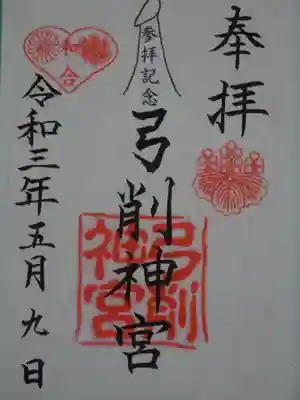 奉拝
参拝記念
弓削神宮
弓削
神宮
和
合
令和三年五月九日